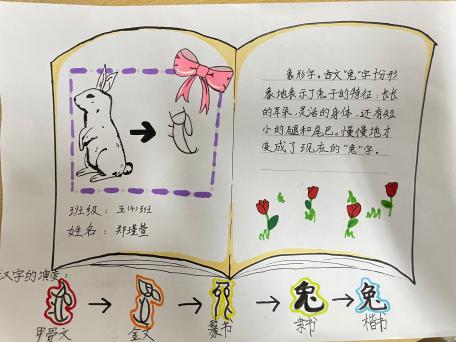 象形字。古文“兔”字十分形
象地表示了兔子的特征：长长
的耳朵，灵活的身体，还有短
小的腿和尾巴。慢慢地才
变成了现在的“兔”字。
班级：五(4)班
姓名：郑瑾萱
汉字的演变：
甲骨文
金文
篆书
兔
隶书
兔
楷书